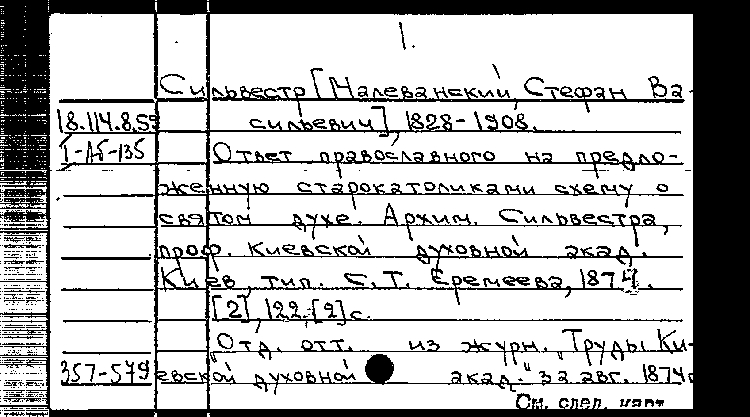 1.
Сильвестр [Малеванский, Стефан Ва-
18.114.8.59 сильевич], 1828-1908.
I-АБ-135 Ответ православного на предло-
женную старокатоликами схему о
святом духе. Архим. Сильвестра,
проф. Киевской духовной акад.
Киев, тип. С.Т. Еремеева, 1874.
[2], 122, [2] с.
Отд. отт. из журн. "Труды Ки-
357-579 евской духовной акад." за авг. 1874 г
См. след. карт